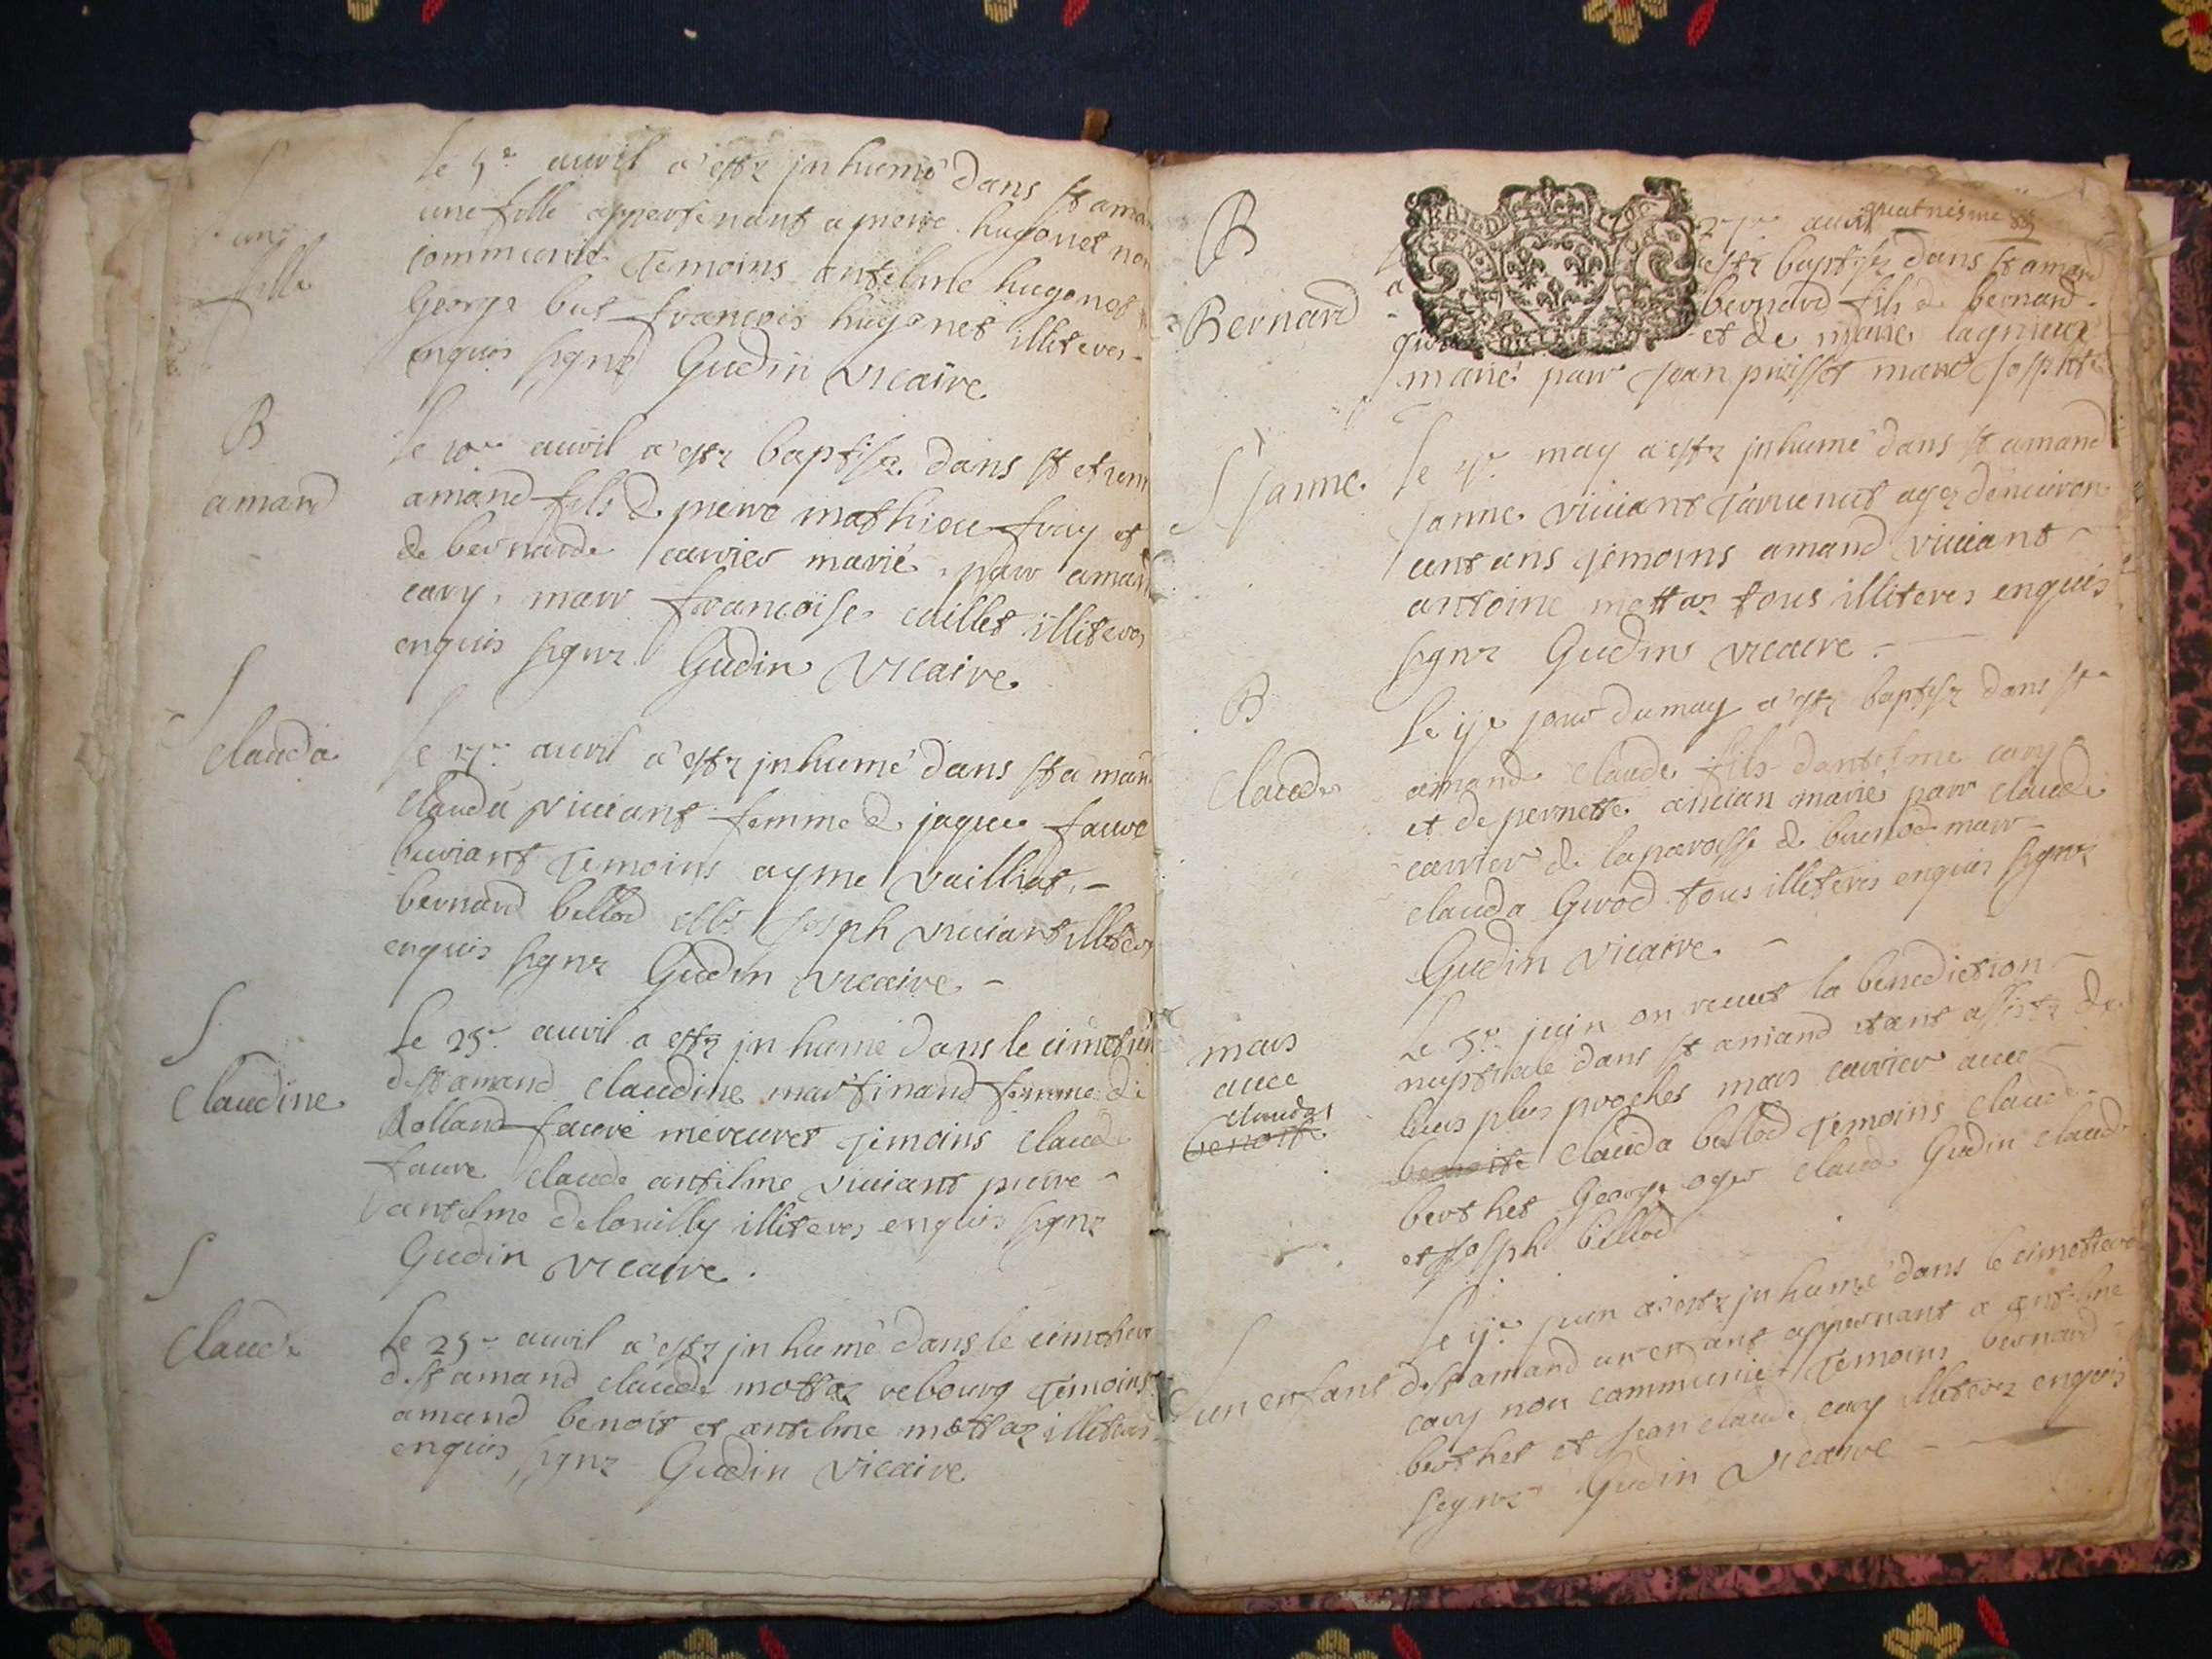 S
une
fille
Le 5e auvril a este jnhumé dans st aman
une fille appertenant a pierre hugonet non
communié Temoins antelme hugonet
George but francois hugonet illiteres
enquis signe Gudin vicaire
B
amand
Le 10e auvril a este baptise dans st et
amand fils d pierre mathieu fray et
de bernarde carrier marié parr amand
cary, marr francoise caillet illiteres
enquis signe Gudin vicaire
S
clauda
Le auvril a este jnhumé dans st aman
clauda viuiant femme d jaque faure
buriant Temoins ayme vailliat
bernard bellod Joseph viuiant illiteres
enquis signe Gudin vicaire
S
Claudine
Le 25e auvril a este jnhumé dans le cimetier
d st amand claudine martinand femme de
Rolland faure mercuret Temoins claude
faure claude antelme viuiant pierre
antelme delouilly illiteres enquis signe
Gudin vicaire.
S
Claude
Le 25e auvril a este jnhumé dans le cimetiere
d st amand claude mottaz rebourg Temoins
amand benoit et antelme mottaz illiteres
enquis signe Gudin vicaire
B
Bernard
auvril quatriesme
GENERAL
a este baptise dans st amand
bernard fils de bernard
et de marie lagnieu
marié parr Jean puisset marr Josephte
S Janne
Le may a este jnhumé dans st amand
Janne viuiant age denuiron
cent ans Temoins amand viuiant
antoine mottaz tous illiteres enquis
signe Gudin vicaire
B
Claude
Le ije jour du may a este baptise dans st
amand Claude fils dantelme cary
et de pernette ancian marié parr claude
carrier de la paroisse de buenod marr
clauda Girod tous illiteres enquis signe
Gudin vicaire
mars
auec
clauda
benoite
Le 5e juin on receut la benediction
nuptiale dans st amand etant assiste de
leurs plus proches mars carrier auec
benoite clauda bellod Temoins claude
berthet George oger claude Gudin claude
et Joseph bellod
S
un enfant
Le ije juin a este jnhumé dans le cimetiere
d st amand un enfant appernant a antelme
cary non communié Temoins bernard
berthet et Jean claude cary illiteres enquis
signe Gudin vicaire